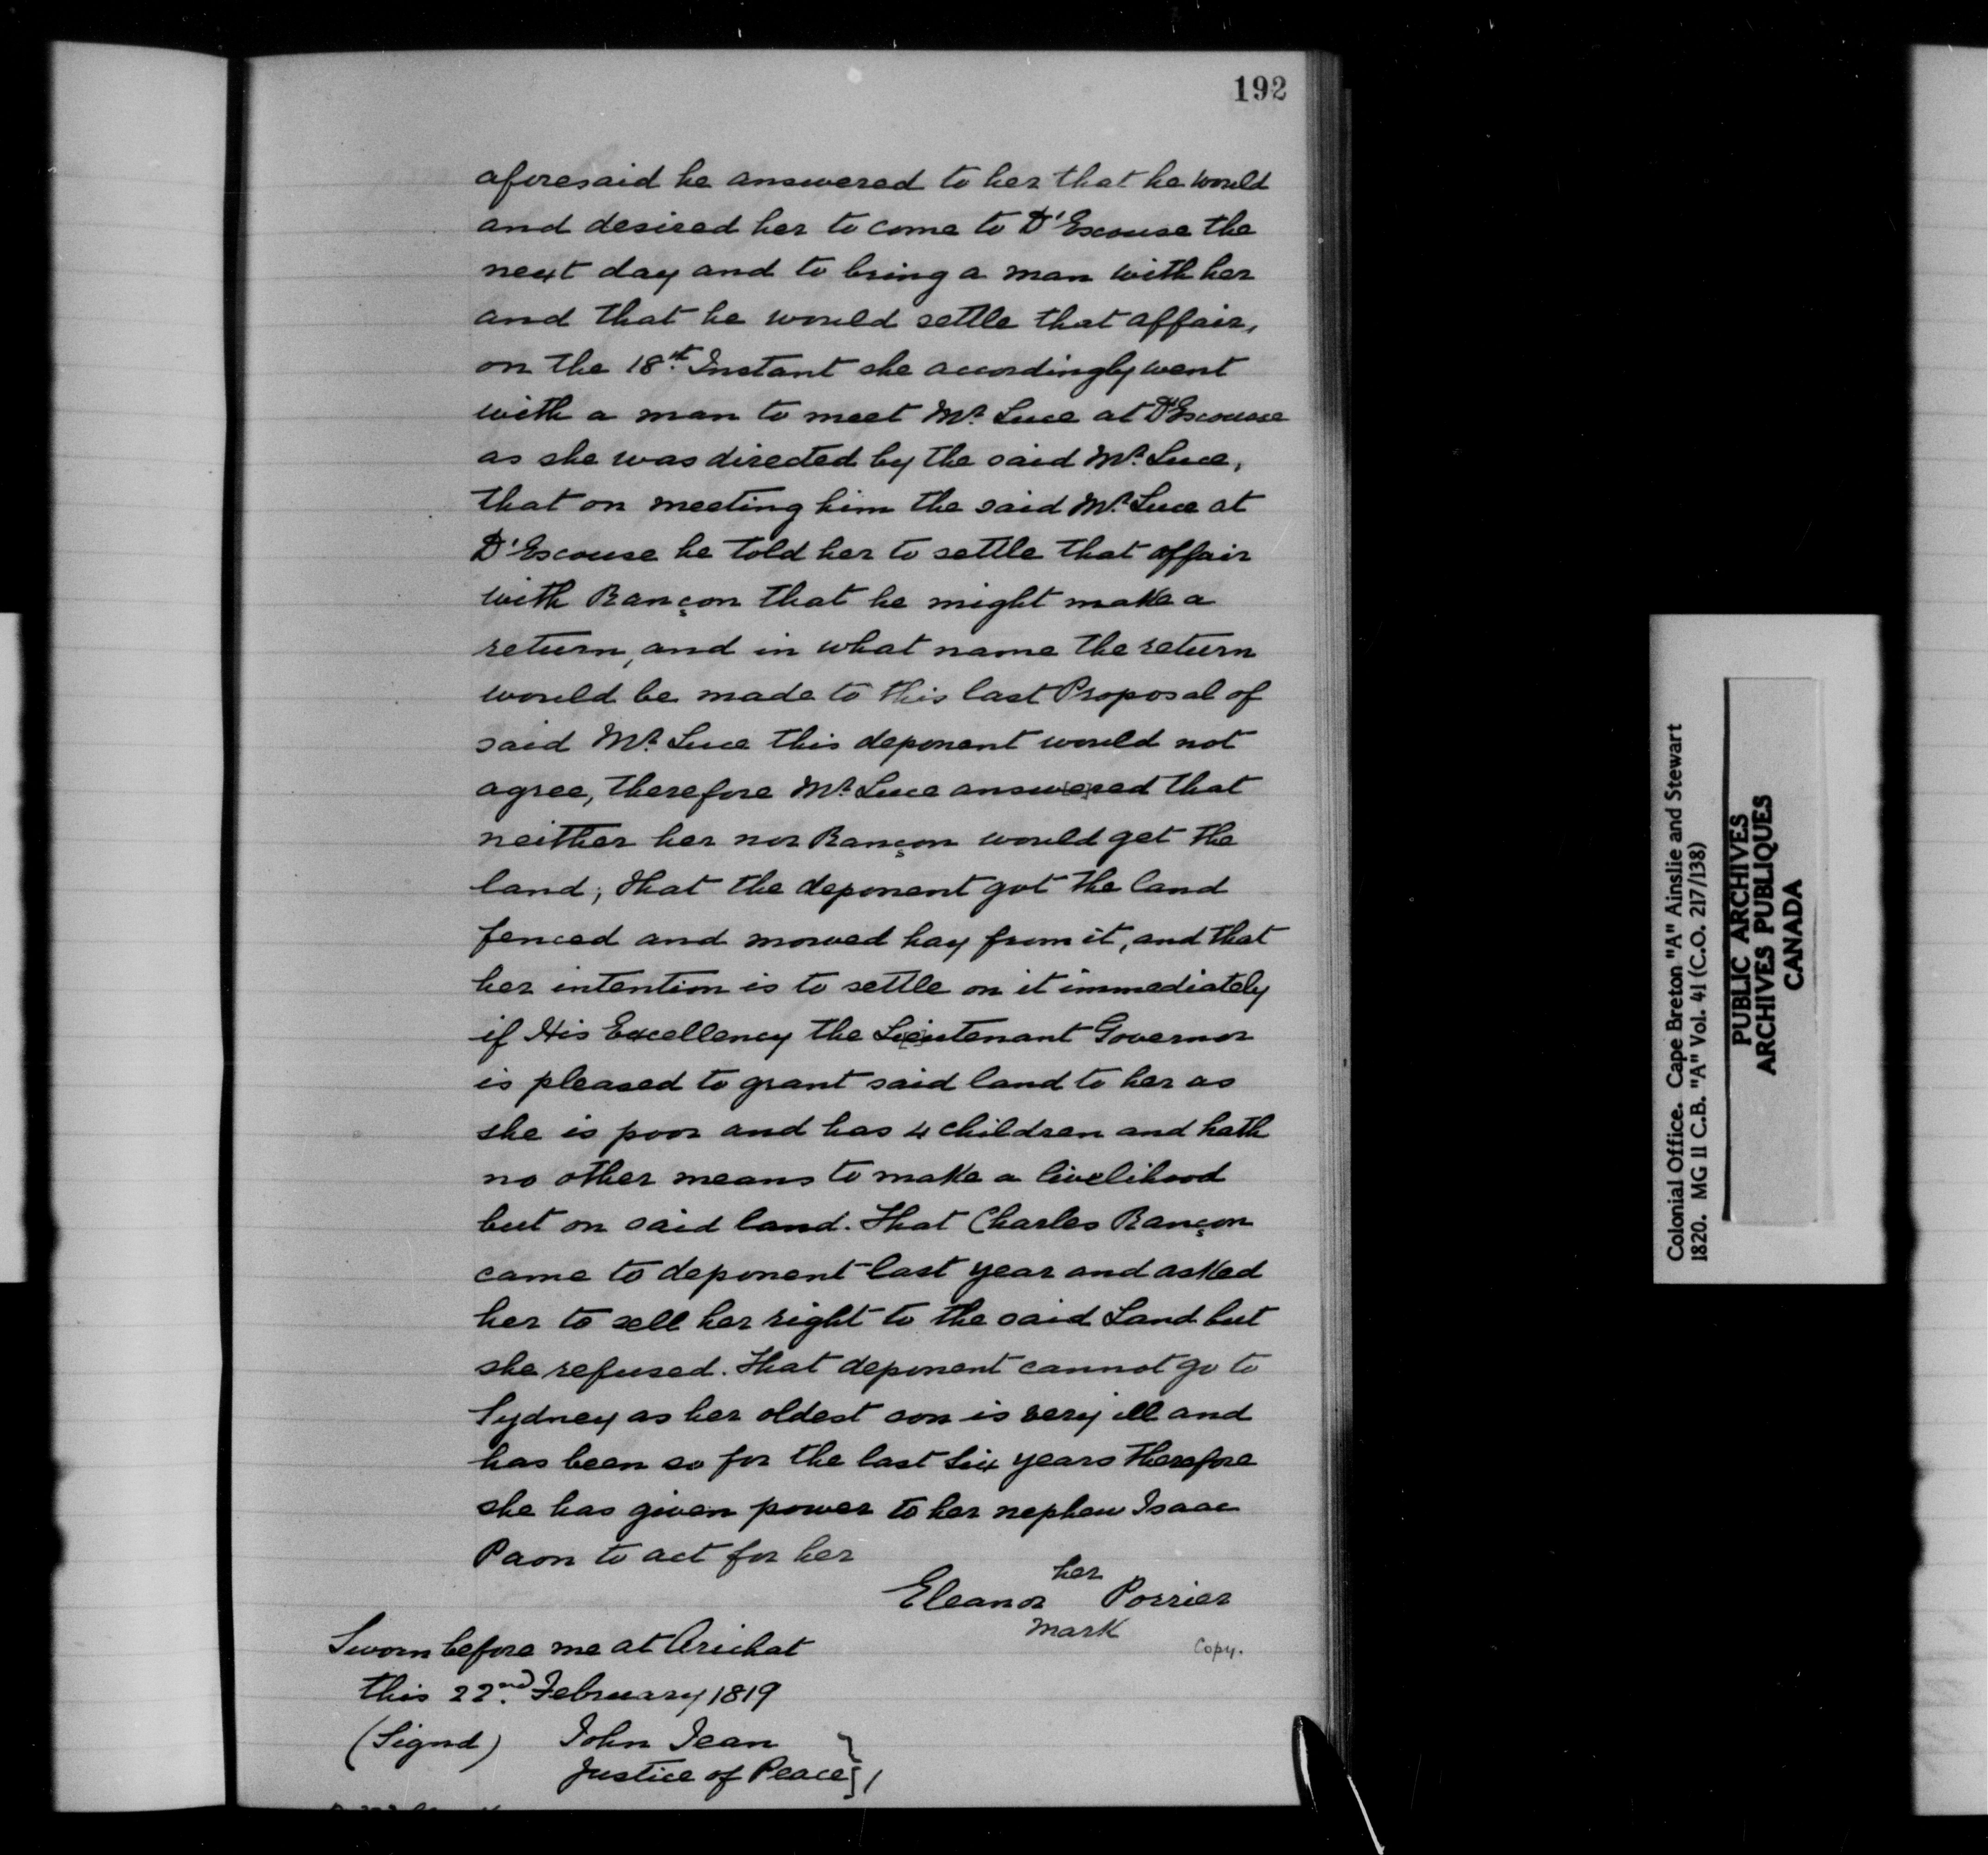 192
aforesaid he answered to her that he would
and desired her to come to D'Escouse the
next day and to bring a man with her
and that he would settle that affair,
on the 18th. Instant she accordingly went
with a man to meet Mr. Luce at D'Escouse
as she was directed by the said Mr. Luce,
that on meeting him the said Mr. Luce at
D'Escouse he told her to settle that affair
with Rançon that he might make a
return, and in what name the return
would be made to this last Proposal of
said Mr. Luce this deponent would not
agree, therefore Mr. Luce answered that
neither her nor Rançon would get the
land; that the deponent got the land
fenced and mowed hay from it, and that
her intention is to settle on it immediately
if His Excellency the Lieutenant Governor
is pleased to grant said land to her as
she is poor and has 4 children and hath
no other means to make a livelihood
but on said land. That Charles Rançon
came to deponent last year and asked
her to sell her right to the said Land but
she refused. That deponent cannot go to
Sydney as her oldest son is very ill and
has been so for the last six years therefore
she has given power to her nephew Isaac
Paon to act for her
her
Eleanor Porrier
mark
Copy.
Sworn before me at Arichat
this 22nd. February 1819
(Signd) John Jean
Justice of Peace
Colonial Office. Cape Breton "A" Ainslie and Stewart
1820. MG 11 C.B. "A" Vol. 41 (C.O. 217/138)
PUBLIC ARCHIVES
ARCHIVES PUBLIQUES
CANADA